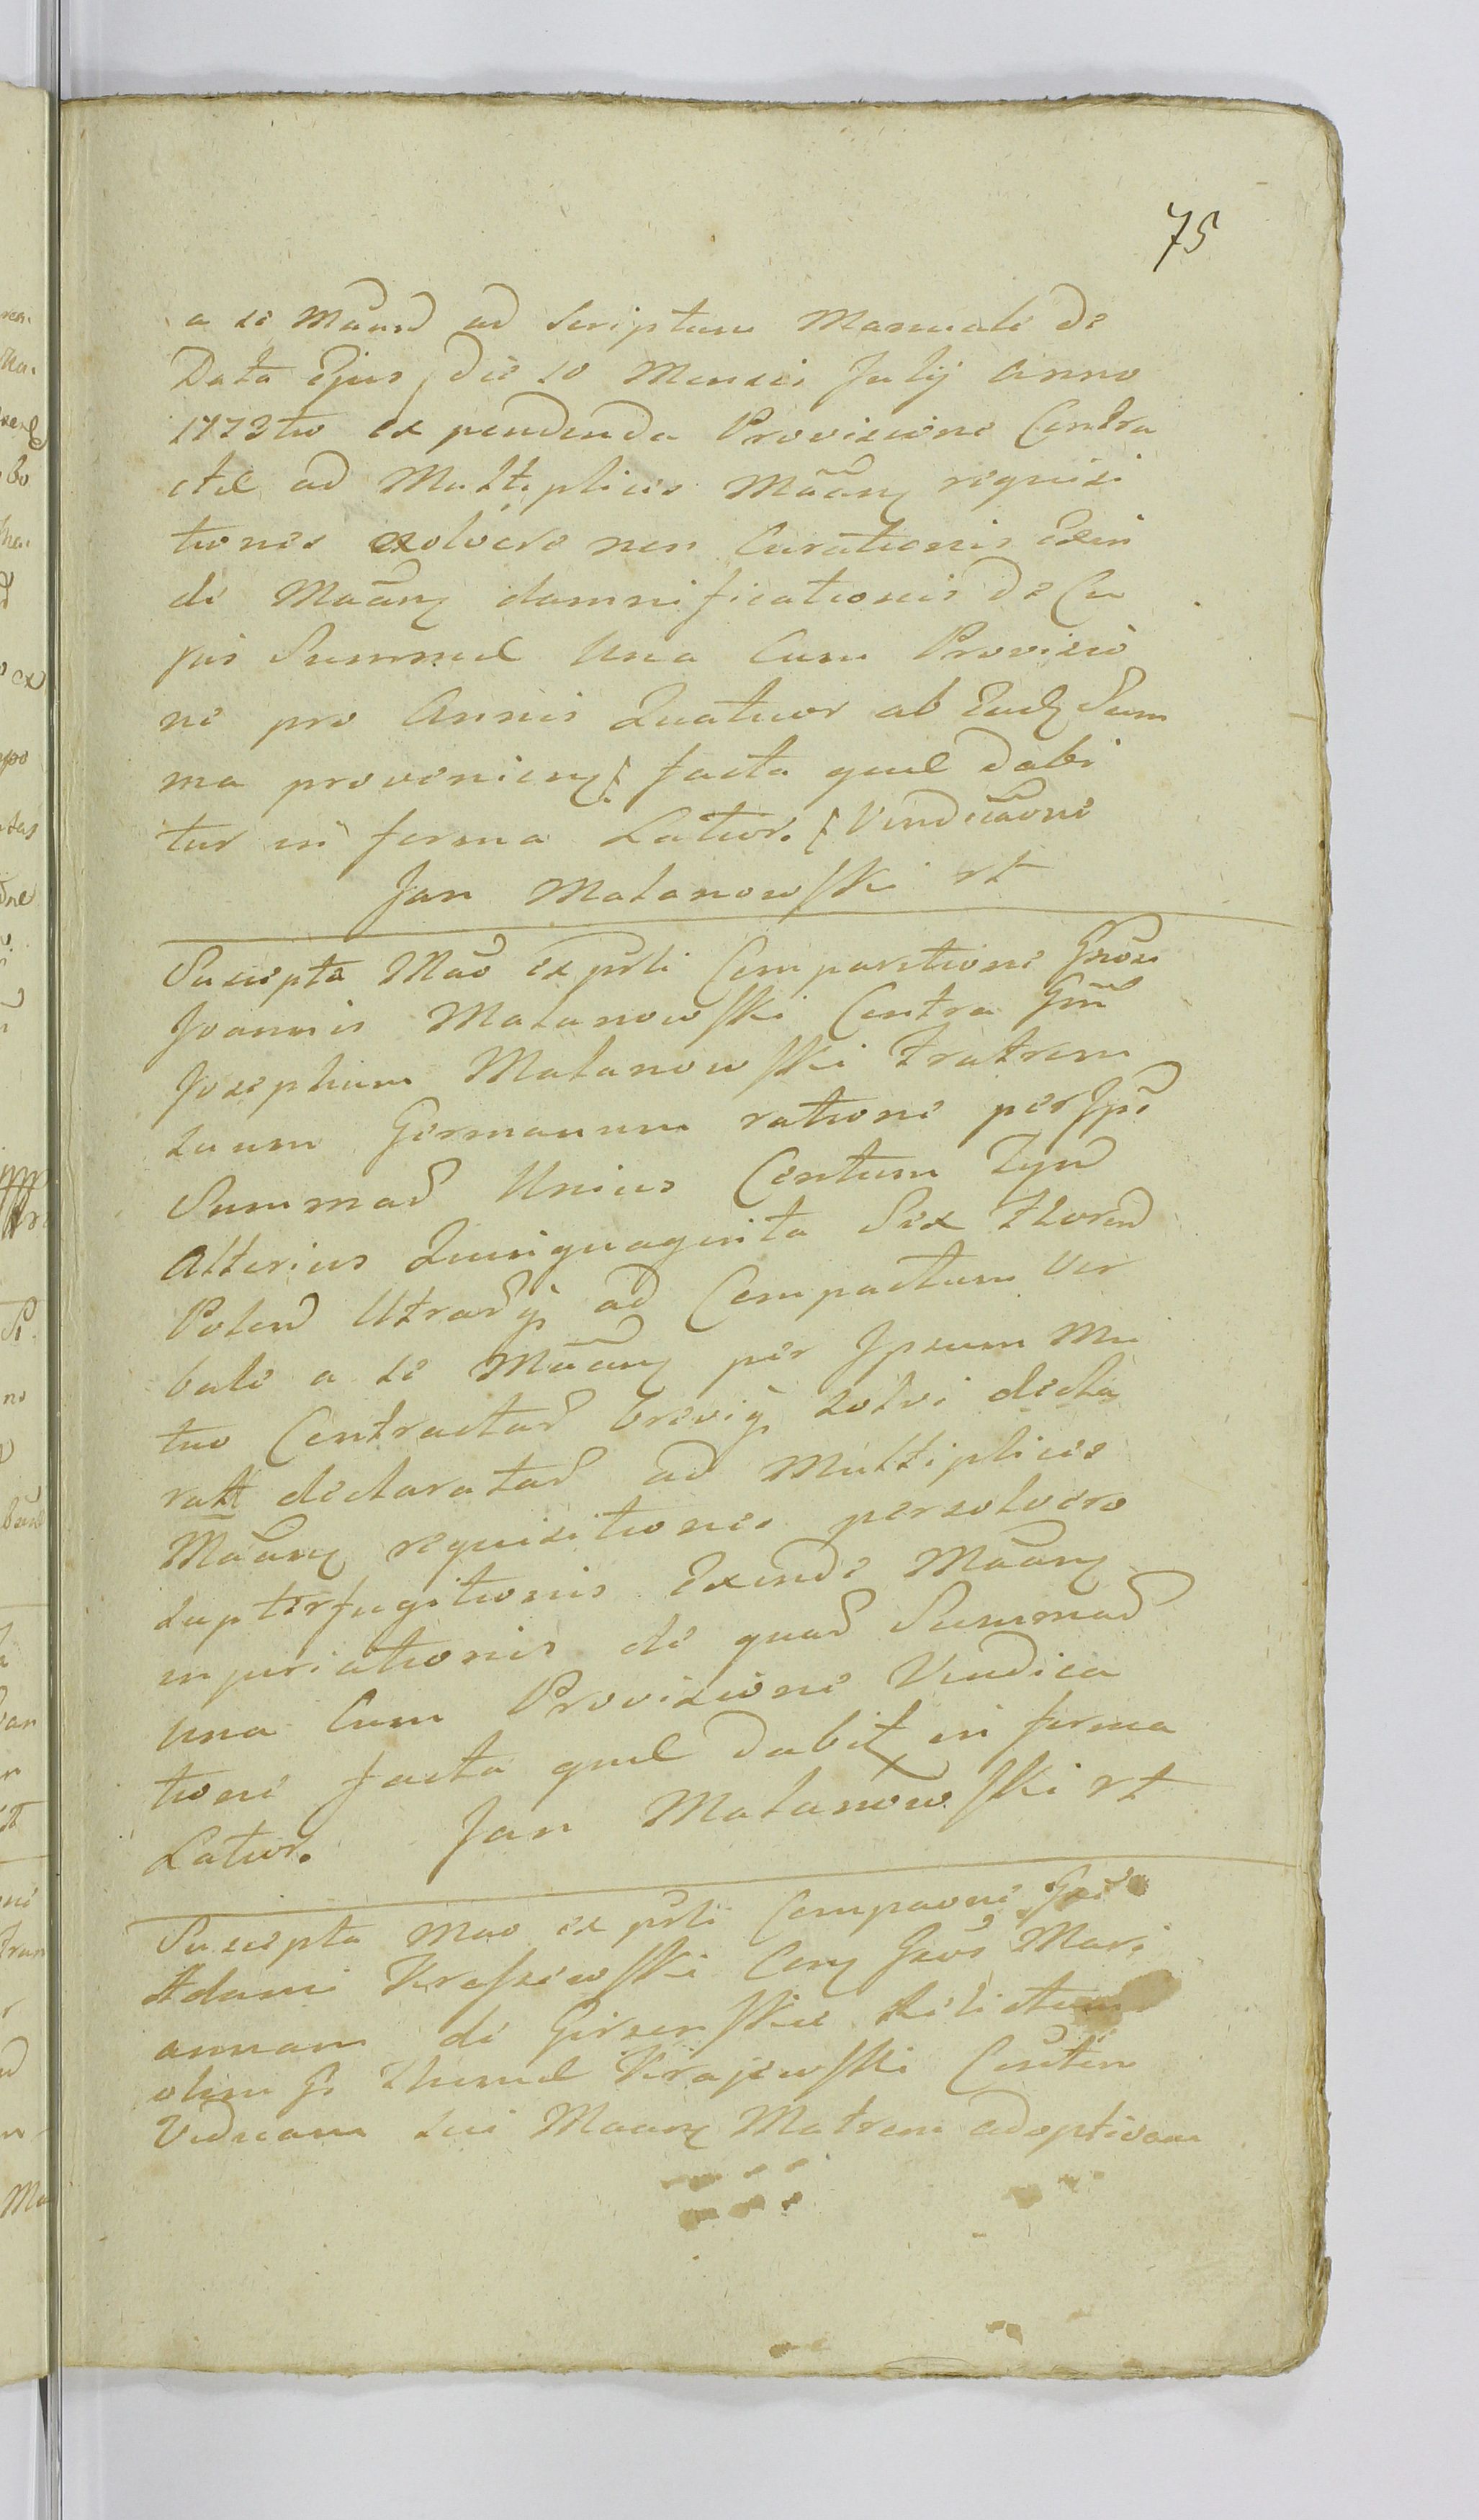 75
a se Mãnd ad Scriptum Manuale de
Data Ejus die 10 Mensis Julij Anno
1773tio ex pendenda Provisione Contra
ctae ad Multiplices Mãang requisi
tiones exolvere non Curationis Exin
de Mãang damnificationis de Cu
jus Summae Una Cum Provisio
ne pro Annis Quatuor ab Ead Sum
ma provenien facta quae dabi
tur in forma Latior. Vindicãone
Jan Malanowski rt
Suscepta Mão ex prsti Comparitione Gnosi
Joannis Malanowski Contra Gm
Josephum Malanowski Fratrem
suum Germanum ratione per Ips
Summad Unius Centum Tynd
Alterius Quinquaginta Sex Florend
Polend Utrasq ad Compactum Ver
bale a se Mãang per Ipsum Mu
tuo Contractad brevig solvi decla
ratt declaratad ad Multiplices
Mãang requisitiones persolvere
supterfugitionis Exinde Mãang
injuriationis de quad Summad
una Cum Provisione Vindica
tione facta quae dabit in forma
Latior. Jan Malanowski rt
Suscepta Mao ex prsti Compaone Gsi
Adami Kraszewski Con Gsos Mari
annam de Girzenskie Relictam
olim G Thomae Krajewski Consten
Viduam sui Maang Matrem adoptivam